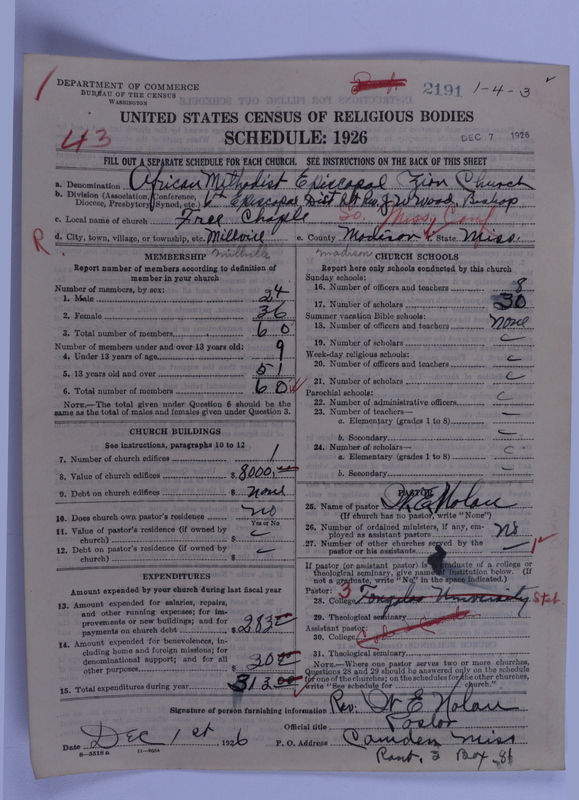 DEPARTMENT OF COMMERCE
BUREAU OF THE CENSUS
WASHINGTON
2191 1-4-3
UNITED STATES CENSUS OF RELIGIOUS BODIES
SCHEDULE: 1926
DEC 7 1926
43
FILL OUT A SEPARATE SCHEDULE FOR EACH CHURCH. SEE INSTRUCTIONS ON THE BACK OF THIS SHEET
a. Denomination African Methodist Episcopal Zion Church
b. Division (Association, Conference, Diocese, Presbytery, Synod, etc.) 6th Episcopal Dist Rt Rev. J. W. Wood, Bishop
So. Miss. Conf
c. Local name of church Free Chaple
d. City, town, village, or township, etc. Millvill e. County Madison f. State Miss.
R. Millville Madison
MEMBERSHIP
Report number of members according to definition of member in your church
Number of members, by sex:
1. Male 24
2. Female 36
3. Total number of members 60
Number of members under and over 13 years old:
4. Under 13 years of age 9
5. 13 years old and over 51
6. Total number of members 60
NOTE.—The total given under Question 6 should be the same as the total of males and females given under Question 3.
CHURCH BUILDINGS
See instructions, paragraphs 10 to 12
7. Number of church edifices 1
8. Value of church edifices $ 8000.
9. Debt on church edifices $ none
10. Does church own pastor's residence no
Yes or No
11. Value of pastor's residence (if owned by church) $
12. Debt on pastor's residence (if owned by church) $
EXPENDITURES
Amount expended by church during last fiscal year
13. Amount expended for salaries, repairs, and other running expenses; for improvements or new buildings; and for payments on church debt $ 282
14. Amount expended for benevolences, including home and foreign missions; for denominational support; and for all other purposes $ 30
15. Total expenditures during year $ 312.00
CHURCH SCHOOLS
Report here only schools conducted by this church
Sunday schools:
16. Number of officers and teachers 8
17. Number of scholars 30
Summer vacation Bible schools:
18. Number of officers and teachers none
19. Number of scholars
Week-day religious schools:
20. Number of officers and teachers
21. Number of scholars
Parochial schools:
22. Number of administrative officers
23. Number of teachers—
a. Elementary (grades 1 to 8)
b. Secondary
24. Number of scholars—
a. Elementary (grades 1 to 8)
b. Secondary
PASTOR
25. Name of pastor Nolan
(If church has no pastor, write "None")
26. Number of ordained ministers, if any, employed as assistant pastors No
27. Number of other churches served by the pastor or his assistants
If pastor (or assistant pastor) is a graduate of a college or theological seminary, give name of institution below. (If not a graduate, write "No" in the space indicated.)
Pastor: 3
28. College University
29. Theological seminary
Assistant pastor:
30. College
31. Theological seminary
NOTE.—Where one pastor serves two or more churches, Questions 28 and 29 should be answered only on the schedule for one of the churches; on the schedules for the other churches, write "See schedule for church."
Signature of person furnishing information Rev. W E Nolan
Official title Pastor
Date Dec 1st 1926 P. O. Address Camden Miss
8—5518 a 11—9034
3 Box 86